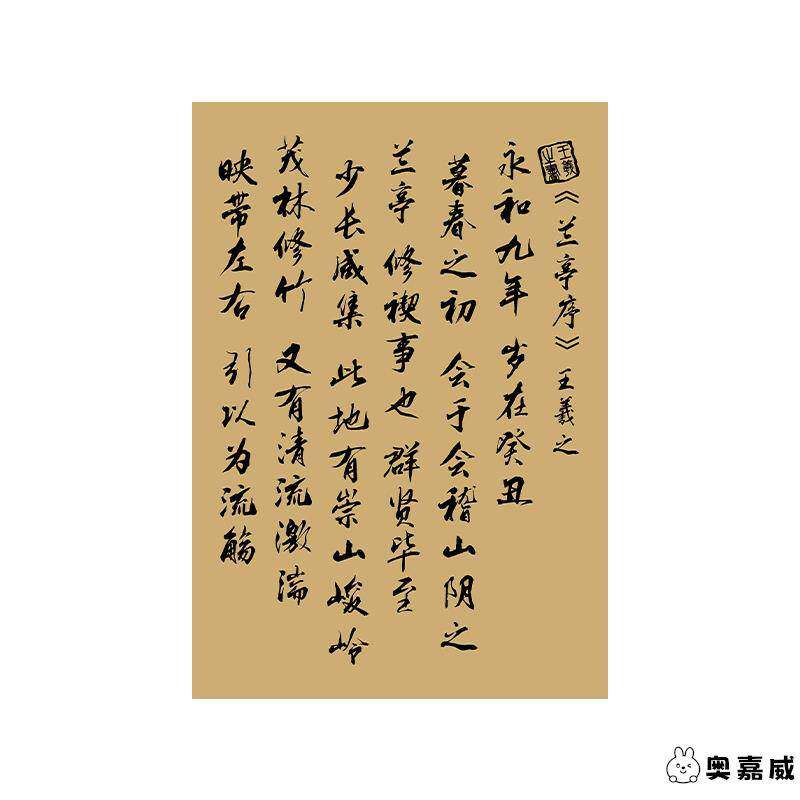 《兰亭序》王羲之
王羲之书
永和九年 岁在癸丑
暮春之初 会于会稽山阴之
兰亭 修禊事也 群贤毕至
少长咸集 此地有崇山峻岭
茂林修竹 又有清流激湍
映带左右 引以为流觞
奥嘉威